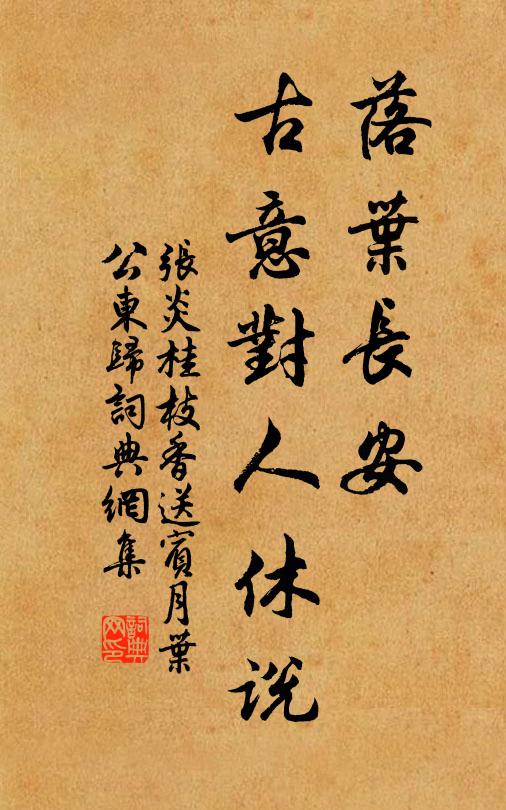 落葉長安
古意對人休説
張炎桂枝香送賓月葉
公東歸詞典網集
詞典網印